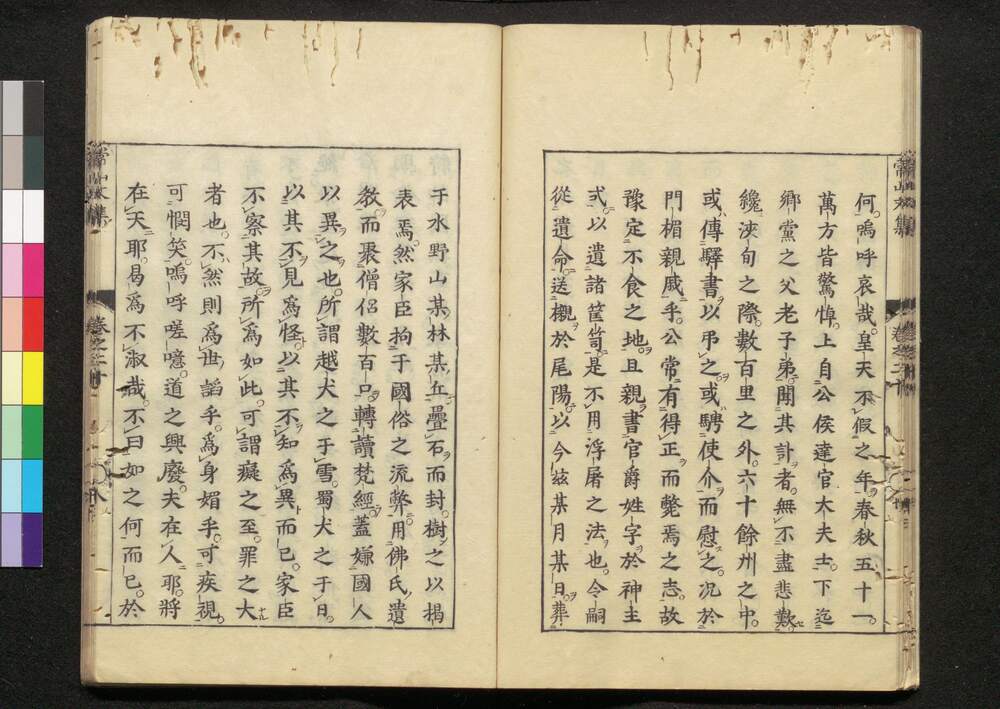 何嗚呼哀哉皇天不假之年春秋五十一
萬方皆驚悼上自公侯達官大夫士下迄
鄉黨之父老子弟聞其訃者無不盡悲歎
纔浹旬之際數百里之外六十餘州之中
或傳驛書以弔之或騁使介而慰之況於
門楣親戚乎公常有得正而斃焉之志故
豫定不食之地且親書官爵姓字於神主
式以遺諸筐笥是不用浮屠之法也令嗣
從遺命送櫬於尾陽以今茲某月某日葬
于水野山某林某丘疊石而封樹之以楬
表焉然家臣拘于國俗之流弊用佛氏遺
教而聚僧侶數百口轉讀梵經蓋嫌國人
以異之也所謂越犬之于雪蜀犬之于日
以其不見為怪以其不知為異而已家臣
不察其故所為如此可謂癡之至罪之大
者也不然則為世謟乎為身媚乎可疾視
可憫笑嗚呼嗟噫道之興廢夫在人耶將
在天耶曷為不淑哉不曰如之何而已於
卷之二十